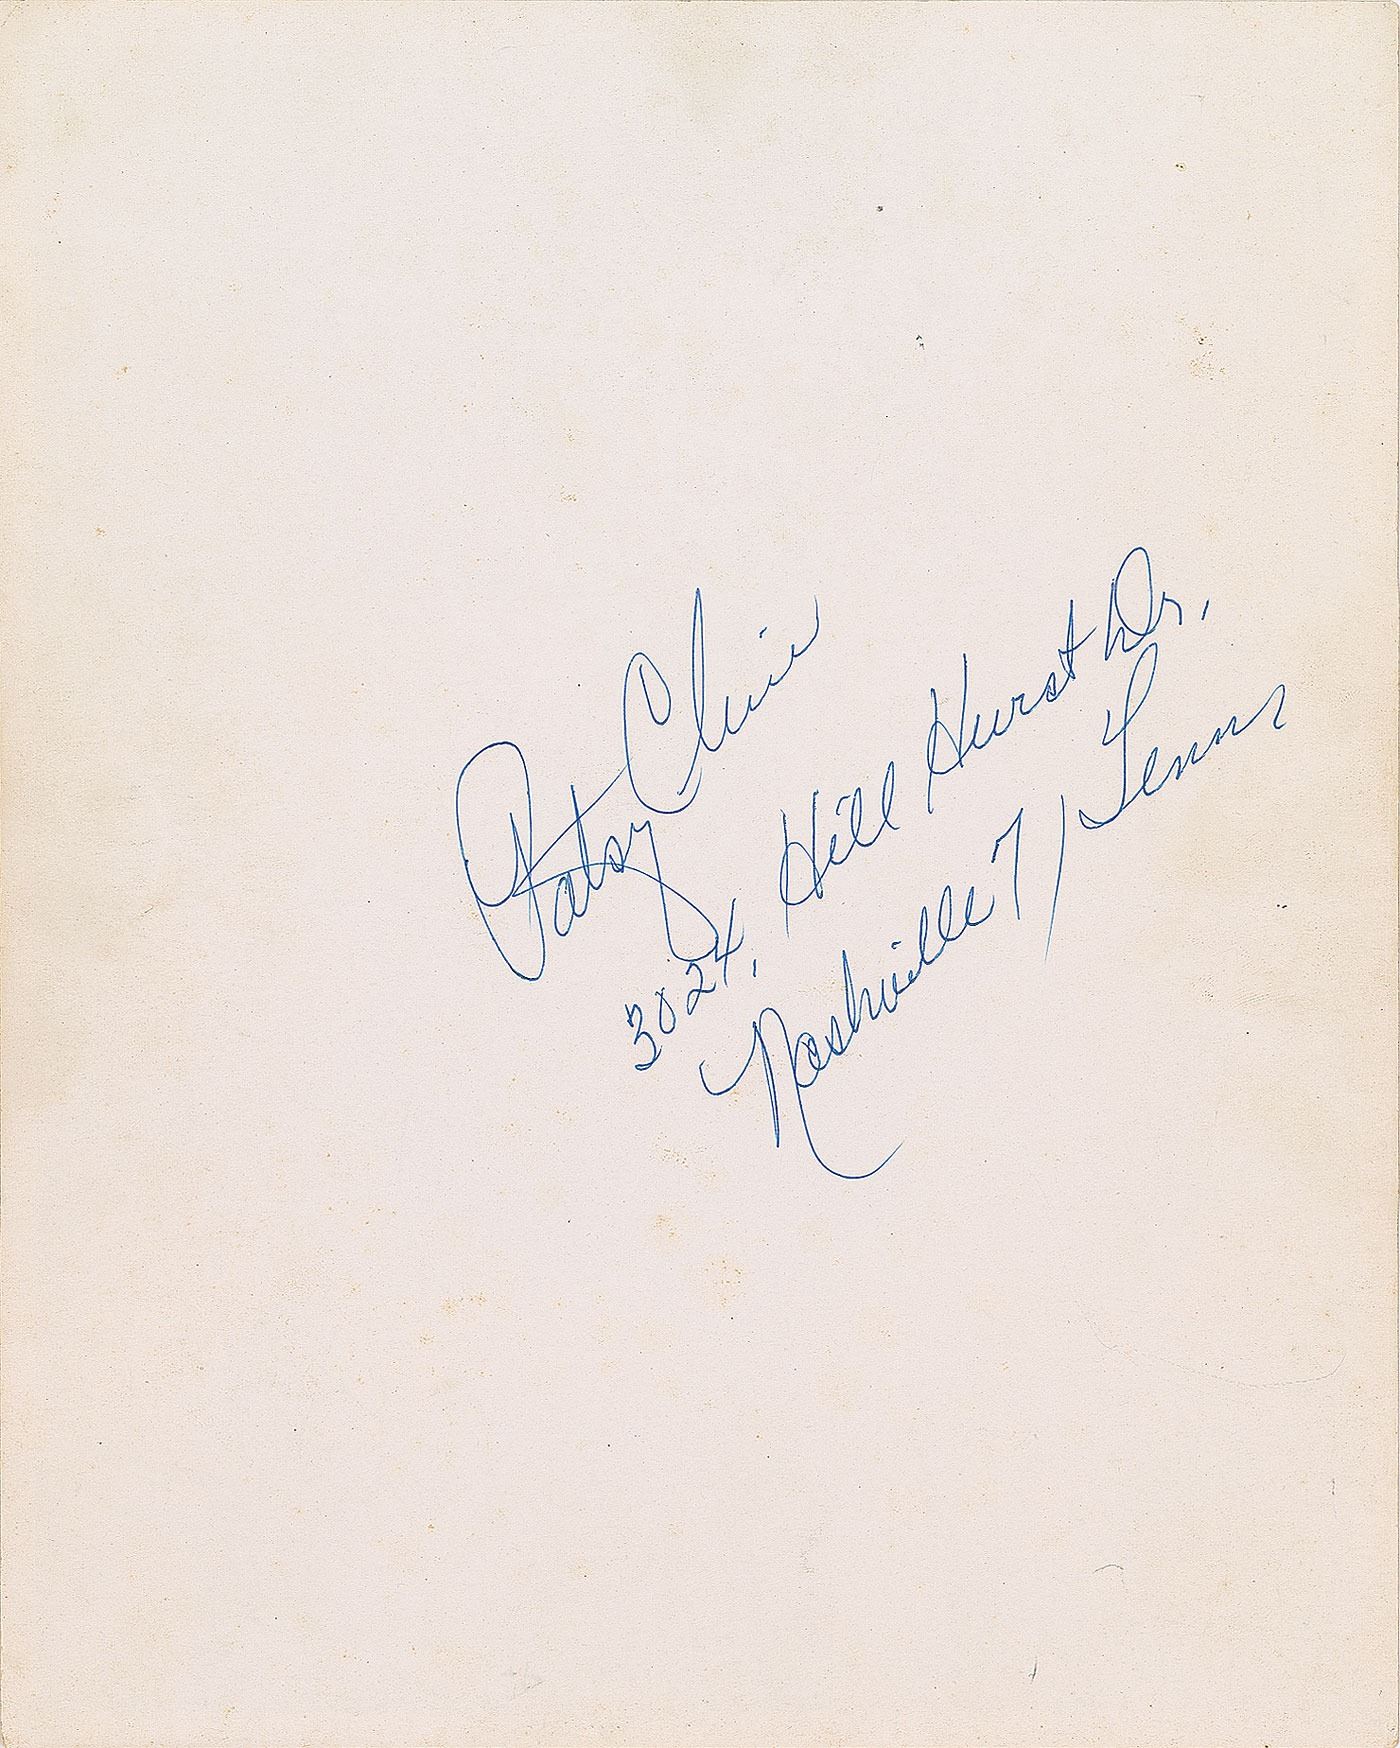 Patsy Cline
3024, Hill Hurst Dr.
Nashville 7, Tenn,